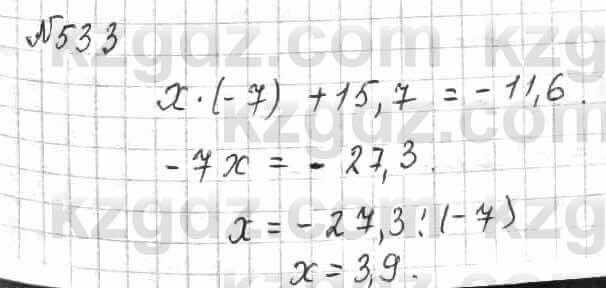 №533
x·(-7) +15,7 = -11,6.
-7x = - 27,3.
x = -27,3:(-7)
x = 3,9.
kzgdz.com
kzgdz.com
kzgdz.com